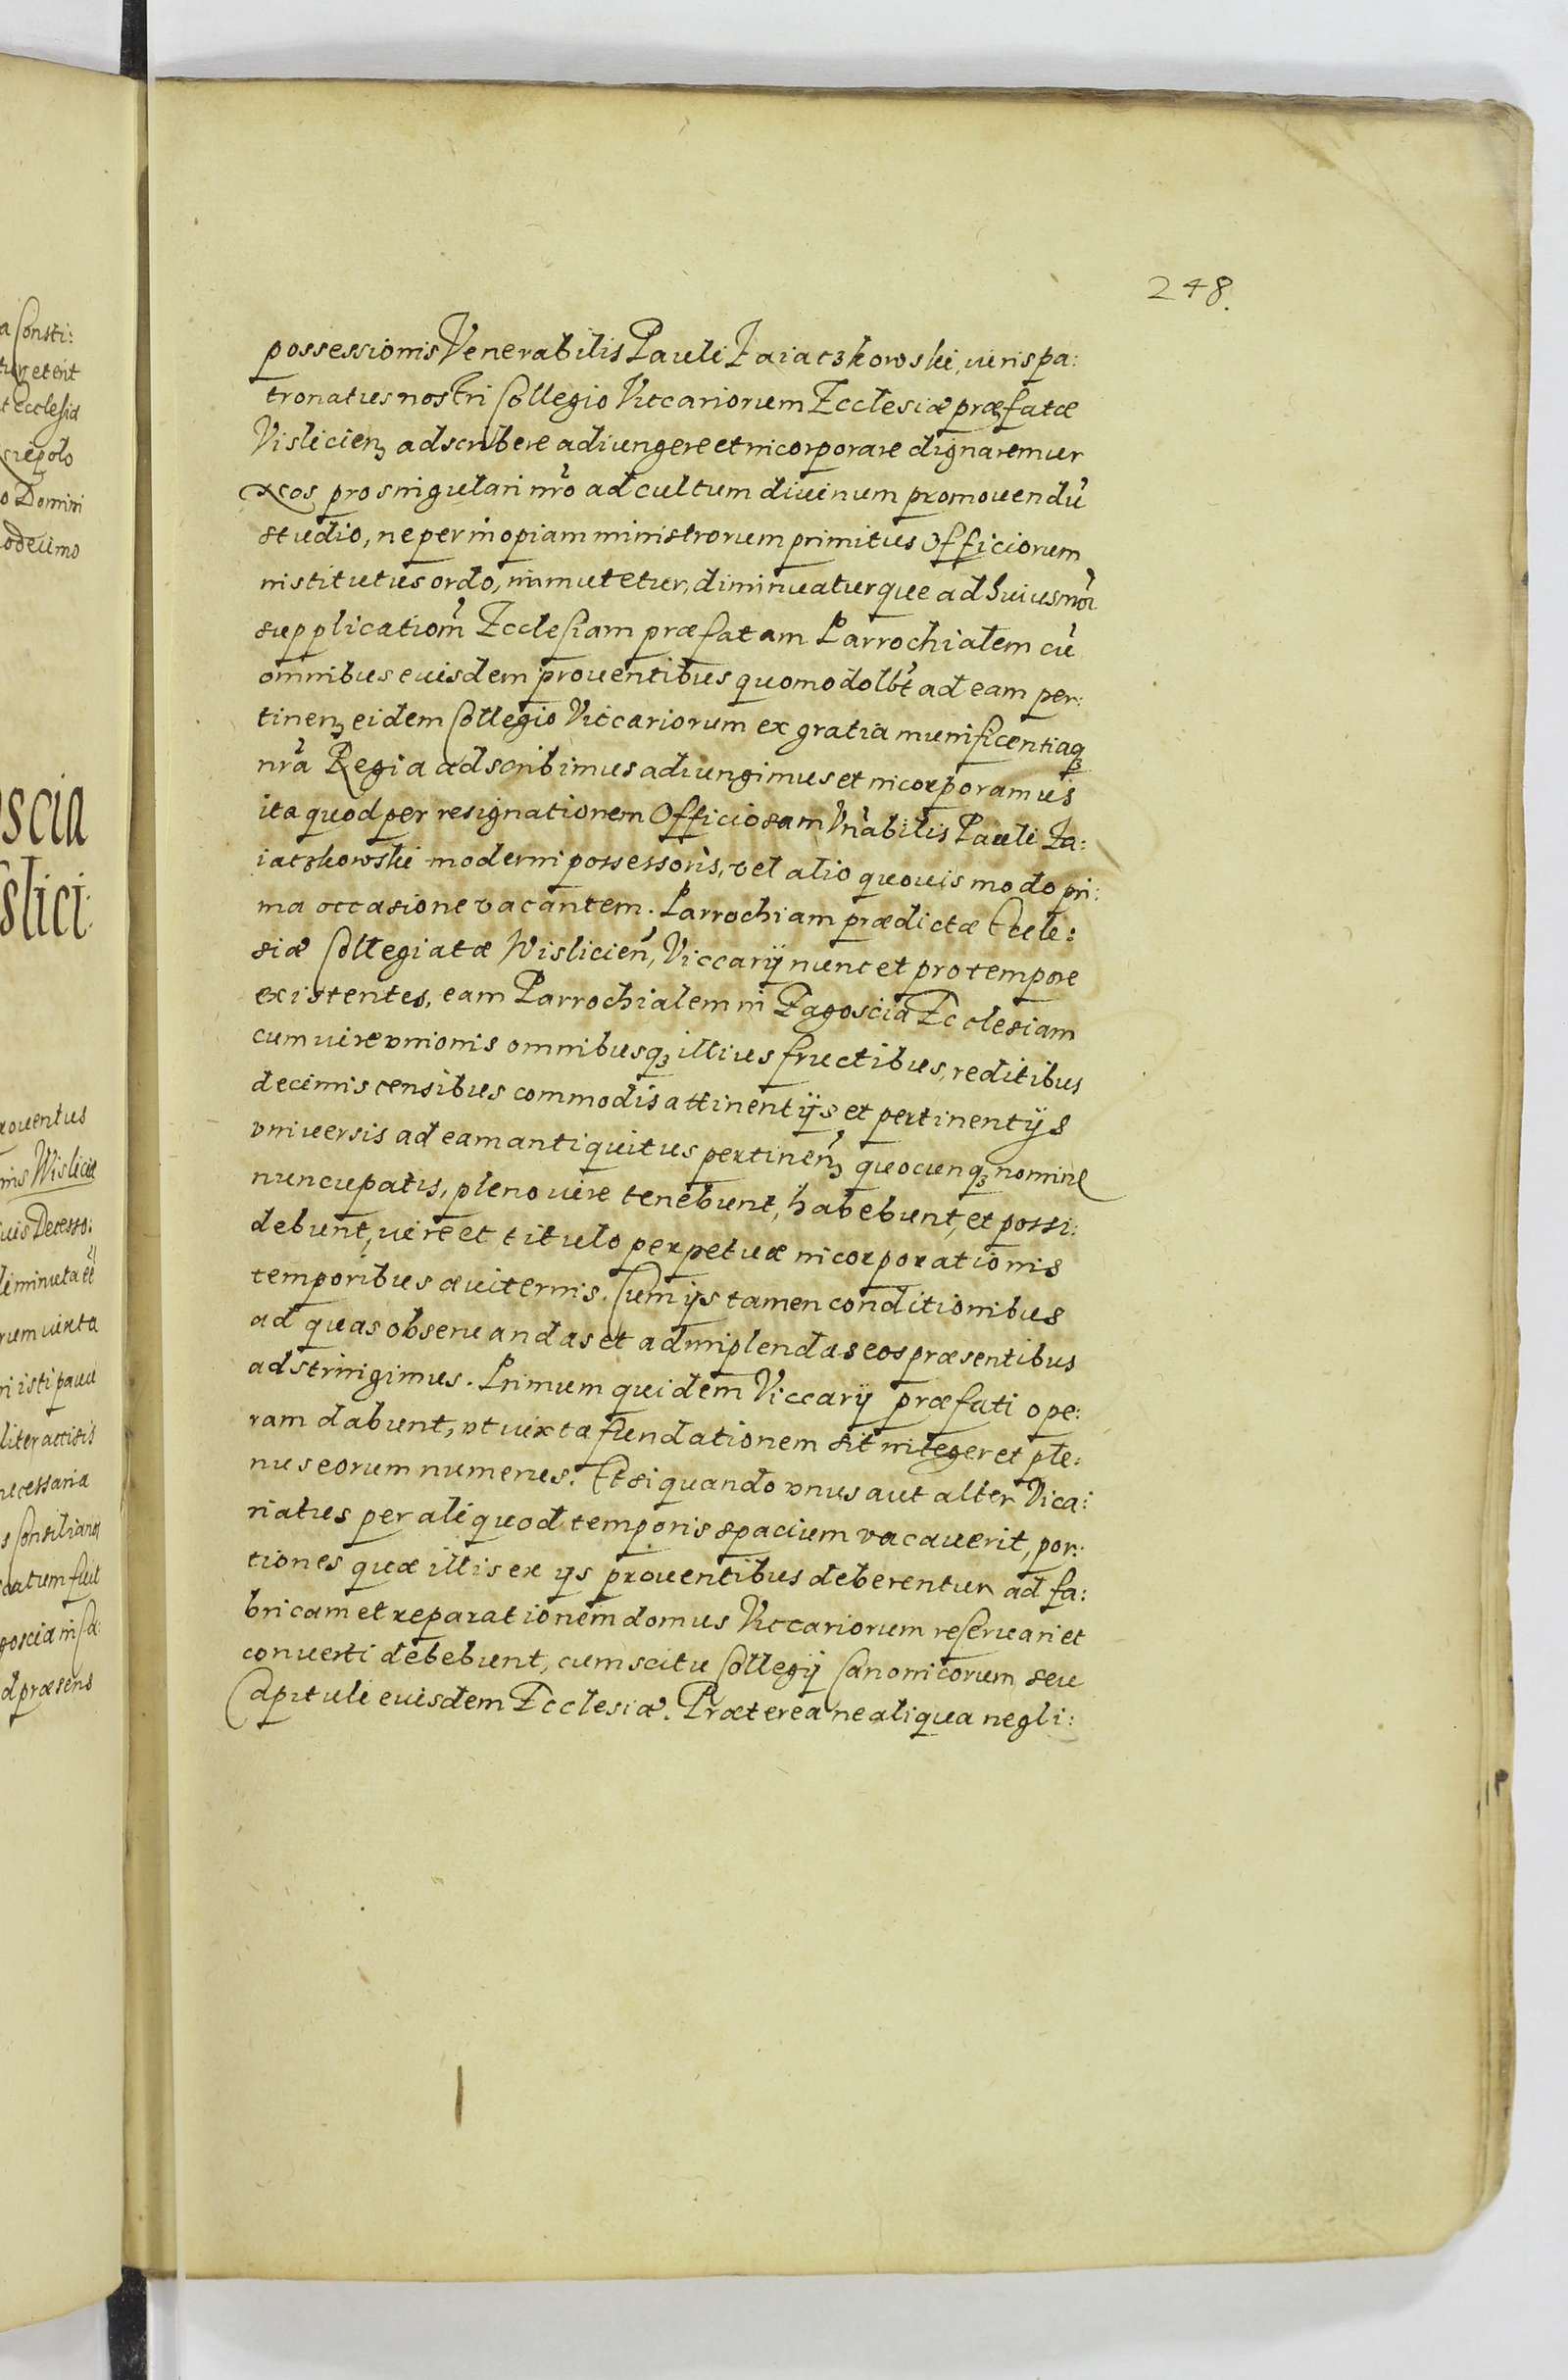 248.
possessionis Venerabilis Pauli Zaiaczkowski, iuris pa:
tronatus nostri Collegio Viccariorum Ecclesiæ præfatæ
Vislicień adscribere adiungere et incorporare dignaremur
Nos pro singulari nro̅ ad cultum diuinum promouendu̅
studio, ne per inopiam ministrorum primitus Officiorum
institutus ordo, immutetur, diminuaturque ad huiusmo̅i
supplicatiom̅ Ecclesiam præfatam Parrochialem cu̅
omnibus euisdem prouentibus quomodolbt̅ ad eam per:
tinenꝫ eidem Collegio Viccariorum ex gratia munificentiaqꝫ
nr̅a Regia adscribimus adiungimus et incorporamus
ita quod per resignationem Officiosam Vn̅abilis Pauli Za:
iaczkowski moderni possessoris, vel alio quouis modo pri:
ma occasione vacantem. Parrochiam prædictæ Eccle:
siæ Collegiatæ Wislicień, Viccarij nunc et pro tempore
existentes, eam Parrochialem in Zagoscia Ecclesiam
cum iure vnionis omnibusqꝫ illius fructibus, reditibus
decimis censibus commodis attinentijs et pertinentijs
vniuersis ad eam antiquitus pertinen̅ꝫ quocunqꝫ nomine
nuncupatis, pleno iure tenebunt, habebunt, et possi:
debunt, iure et titulo perpetuæ incorporationis
temporibus æuiternis. Cum ijs tamen conditionibus
ad quas obseruandas et adimplendas eos præsentibus
adstringimus. Primum quidem Viccarij præfati ope:
ram dabunt, vt iuxta fundationem sit integer et ple:
nus eorum numerus. Et si quando vnus aut alter Vica:
riatus per aliquod temporis spacium vacauerit, por:
tiones quæ illis ex ijs prouentibus deberentur ad fa:
bricam et reparationem domus Viccariorum reseruari et
conuerti debebunt, cum scitu Collegij Canonicorum seu
Capituli euisdem Ecclesiæ. Præterea ne aliqua negli: